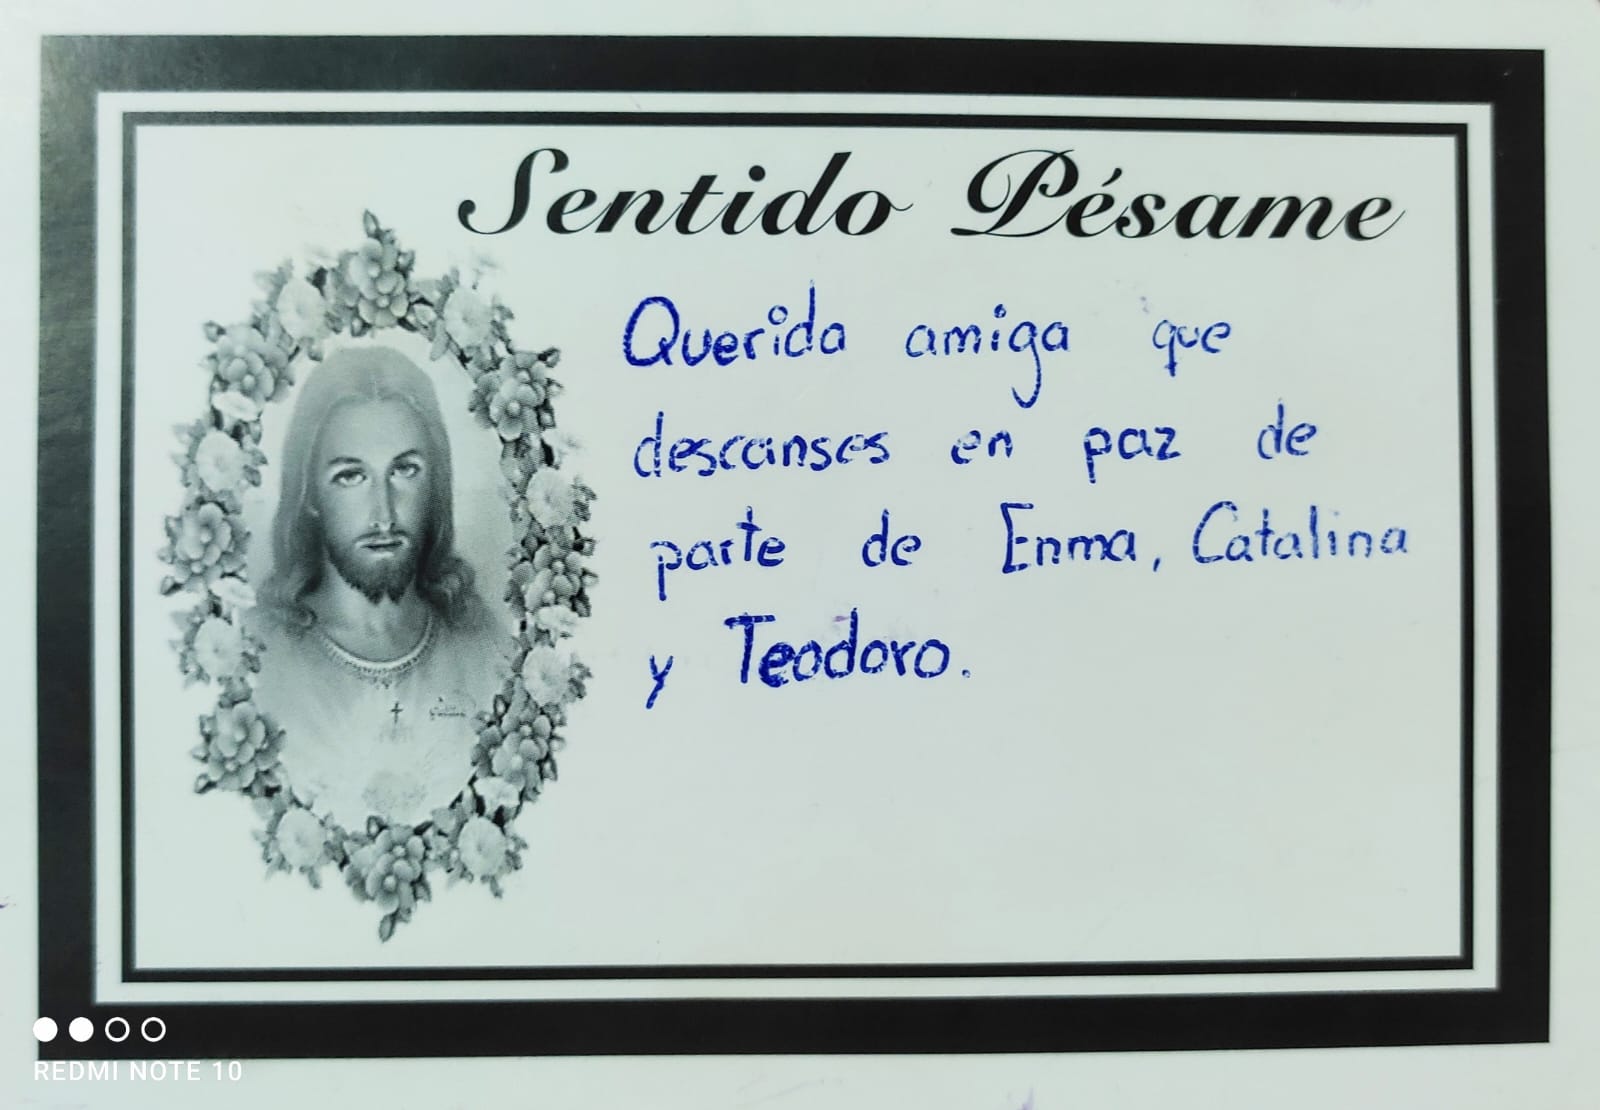 Sentido Pésame
Querida amiga que
descanses en paz de
parte de Enma, Catalina
y Teodoro.
REDMI NOTE 10